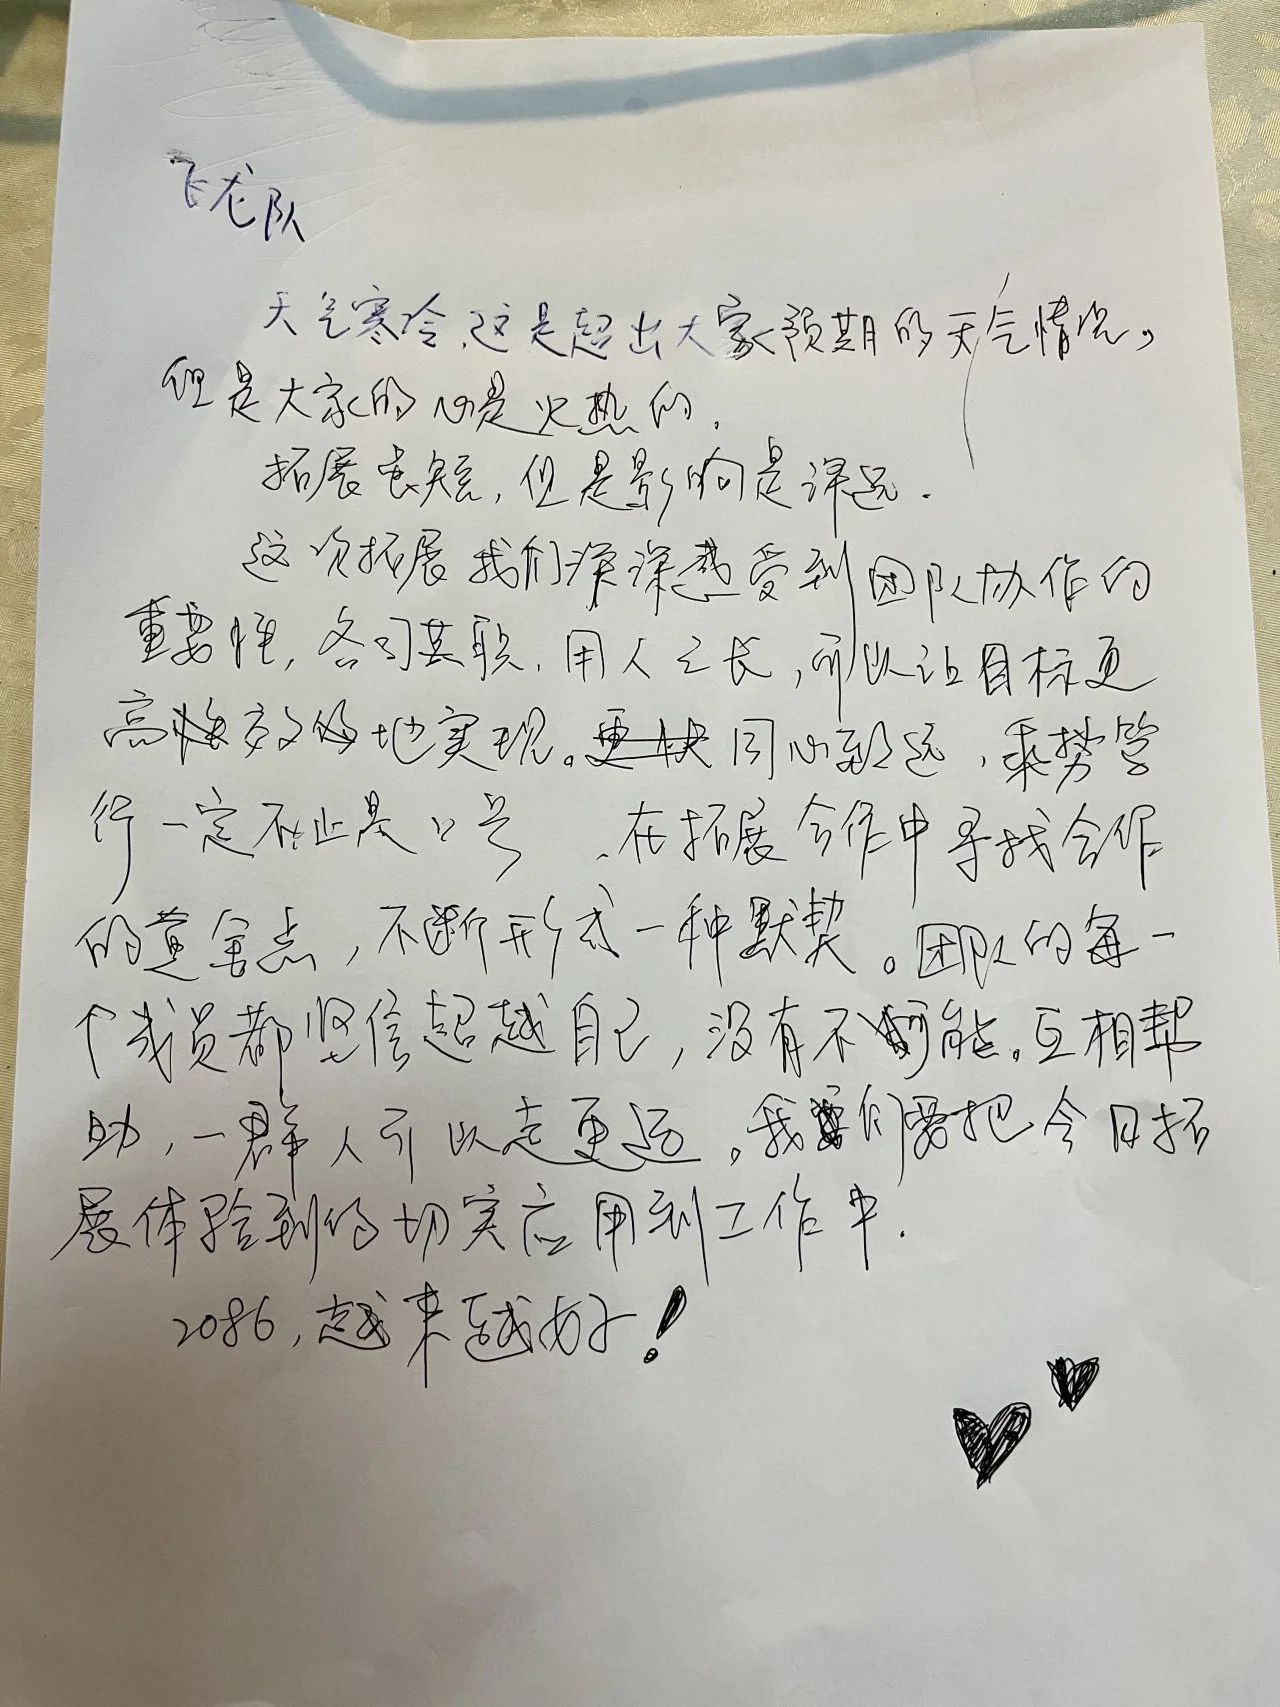 飞龙队
天气寒冷,这是超出大家预期的天气情况。
但是大家的心是火热的.
拓展长短,但是影响是深远.
这次拓展我们深深感受到团队协作的
重要性,各司其职.用人之长,所以让目标更
高效的地实现。同心致远,乘势笃
行一定不止是口号.在拓展合作中寻找合作
的黄金点,不断形成一种默契。团队的每一
个成员都坚信超越自己,没有不可能。互相帮
助,一群人可以走更远。我们要把今日拓
展体验到的切实应用到工作中.
2086,越来越好!